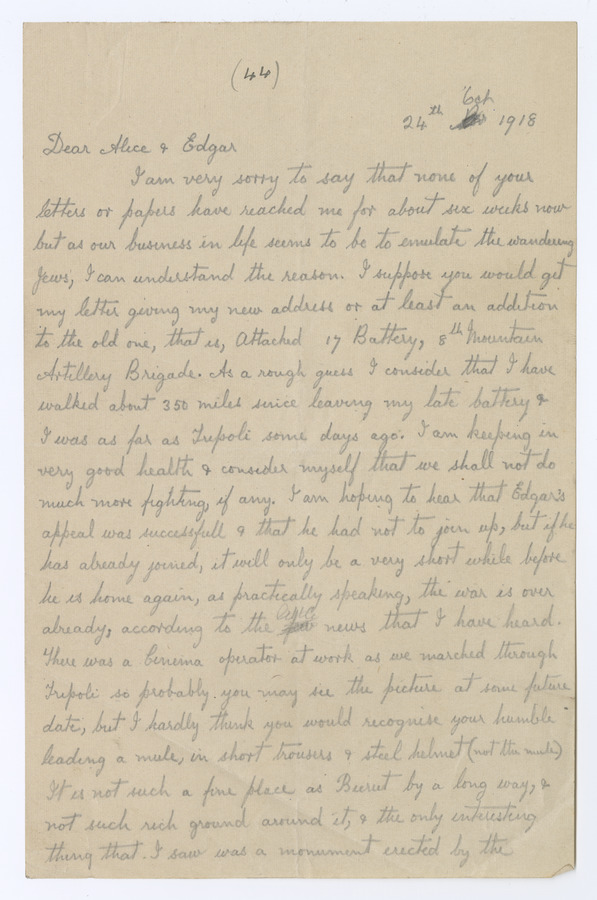 (44)
24th Oct 1918
Dear Alice & Edgar
I am very sorry to say that none of your
letters or papers have reached me for about six weeks now
but as our business in life seems to be to emulate the wandering
Jews, I can understand the reason. I suppose you would get
my letter giving my new address or at least an addition
to the old one, that is, Attached 17 Battery, 8th Mountain
Artillery Brigade. As a rough guess I consider that I have
walked about 350 miles since leaving my late battery &
I was as far as Tripoli some days ago. I am keeping in
very good health & consider myself that we shall not do
much more fighting, if any. I am hoping to hear that Edgar's
appeal was successfull & that he had not to join up, but if he
has already joined, it will only be a very short while before
he is home again, as practically speaking, the war is over
already, according to the news that I have heard.
There was a Cinema operator at work as we marched through
Tripoli so probably you may see the picture at some future
date, but I hardly think you would recognise your humble
leading a mule, in short trousers & steel helmet (not the mule)
It is not such a fine place as Beirut by a long way, &
not such rich ground around it, & the only interesting
thing that I saw was a monument erected by the